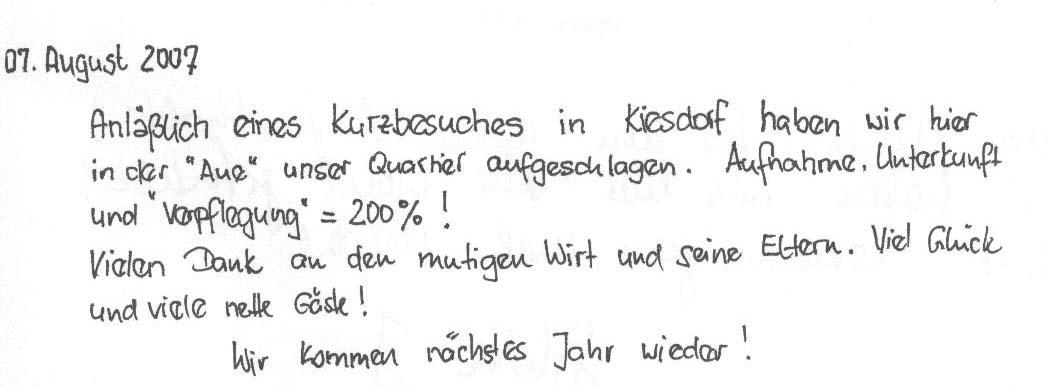 07. August 2007
Anläßlich eines Kurzbesuches in Kiesdorf haben wir hier
in der "Aue" unser Quartier aufgeschlagen. Aufnahme, Unterkunft
und "Verpflegung" = 200% !
Vielen Dank an den mutigen Wirt und seine Eltern. Viel Glück
und viele nette Gäste!
Wir kommen nächstes Jahr wieder!